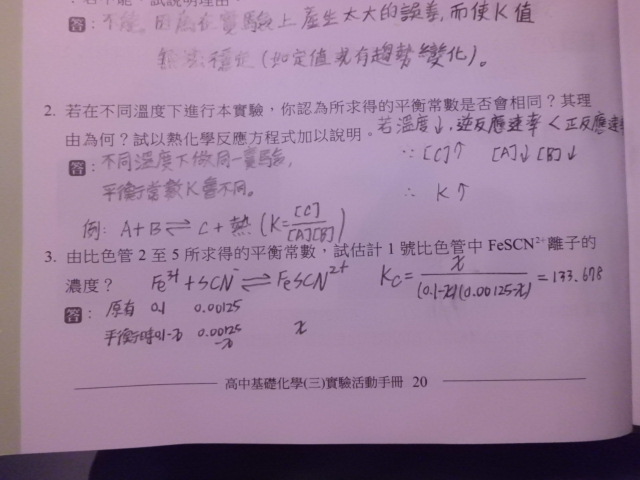 答：不能，因為在實驗上產生太大的誤差，而使K值
無法穩定（如定值或有趨勢變化）。
2. 若在不同溫度下進行本實驗，你認為所求得的平衡常數是否會相同？其理
由為何？試以熱化學反應方程式加以說明。若溫度↓，逆反應速率 < 正反應速率
答：不同溫度下做同一實驗， ∵ [C]↑ [A]↓ [B]↓
平衡常數K會不同。 ∴ K↑
例： A+B⇌C+熱 (K=[C]/[A][B])
3. 由比色管 2 至 5 所求得的平衡常數，試估計 1 號比色管中 FeSCN²⁺ 離子的
濃度？ Fe³⁺+SCN⁻⇌FeSCN²⁺ Kc=x/(0.1-x)(0.00125-x)=133.678
答：原有 0.1 0.00125
平衡時 0.1-x 0.00125-x x
高中基礎化學(三)實驗活動手冊 20